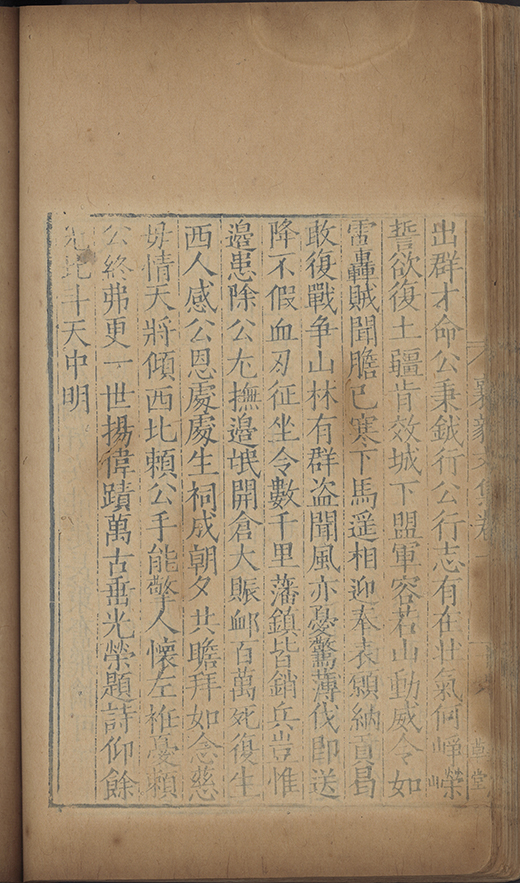 出群才命公秉鉞行公行志有在壯氣何崢嶸
誓欲復土疆肯效城下盟軍容若山動威令如
雷轟賊聞膽已寒下馬遥相迎奉表願納貢曷
敢復戰争山林有群盗聞風亦憂驚薄伐即送
降不假血刃征坐令數千里藩鎮皆銷兵豈惟
邉患除公尤撫邉氓開倉大賑䘏百萬死復生
西人感公恩處處生祠成朝夕共瞻拜如念慈
母情天將傾西北賴公手能擎人懐左袵憂賴
公終弗更一世揚偉蹟萬古垂光榮題詩仰餘
光北斗天中明
襄毅文集卷一
草堂